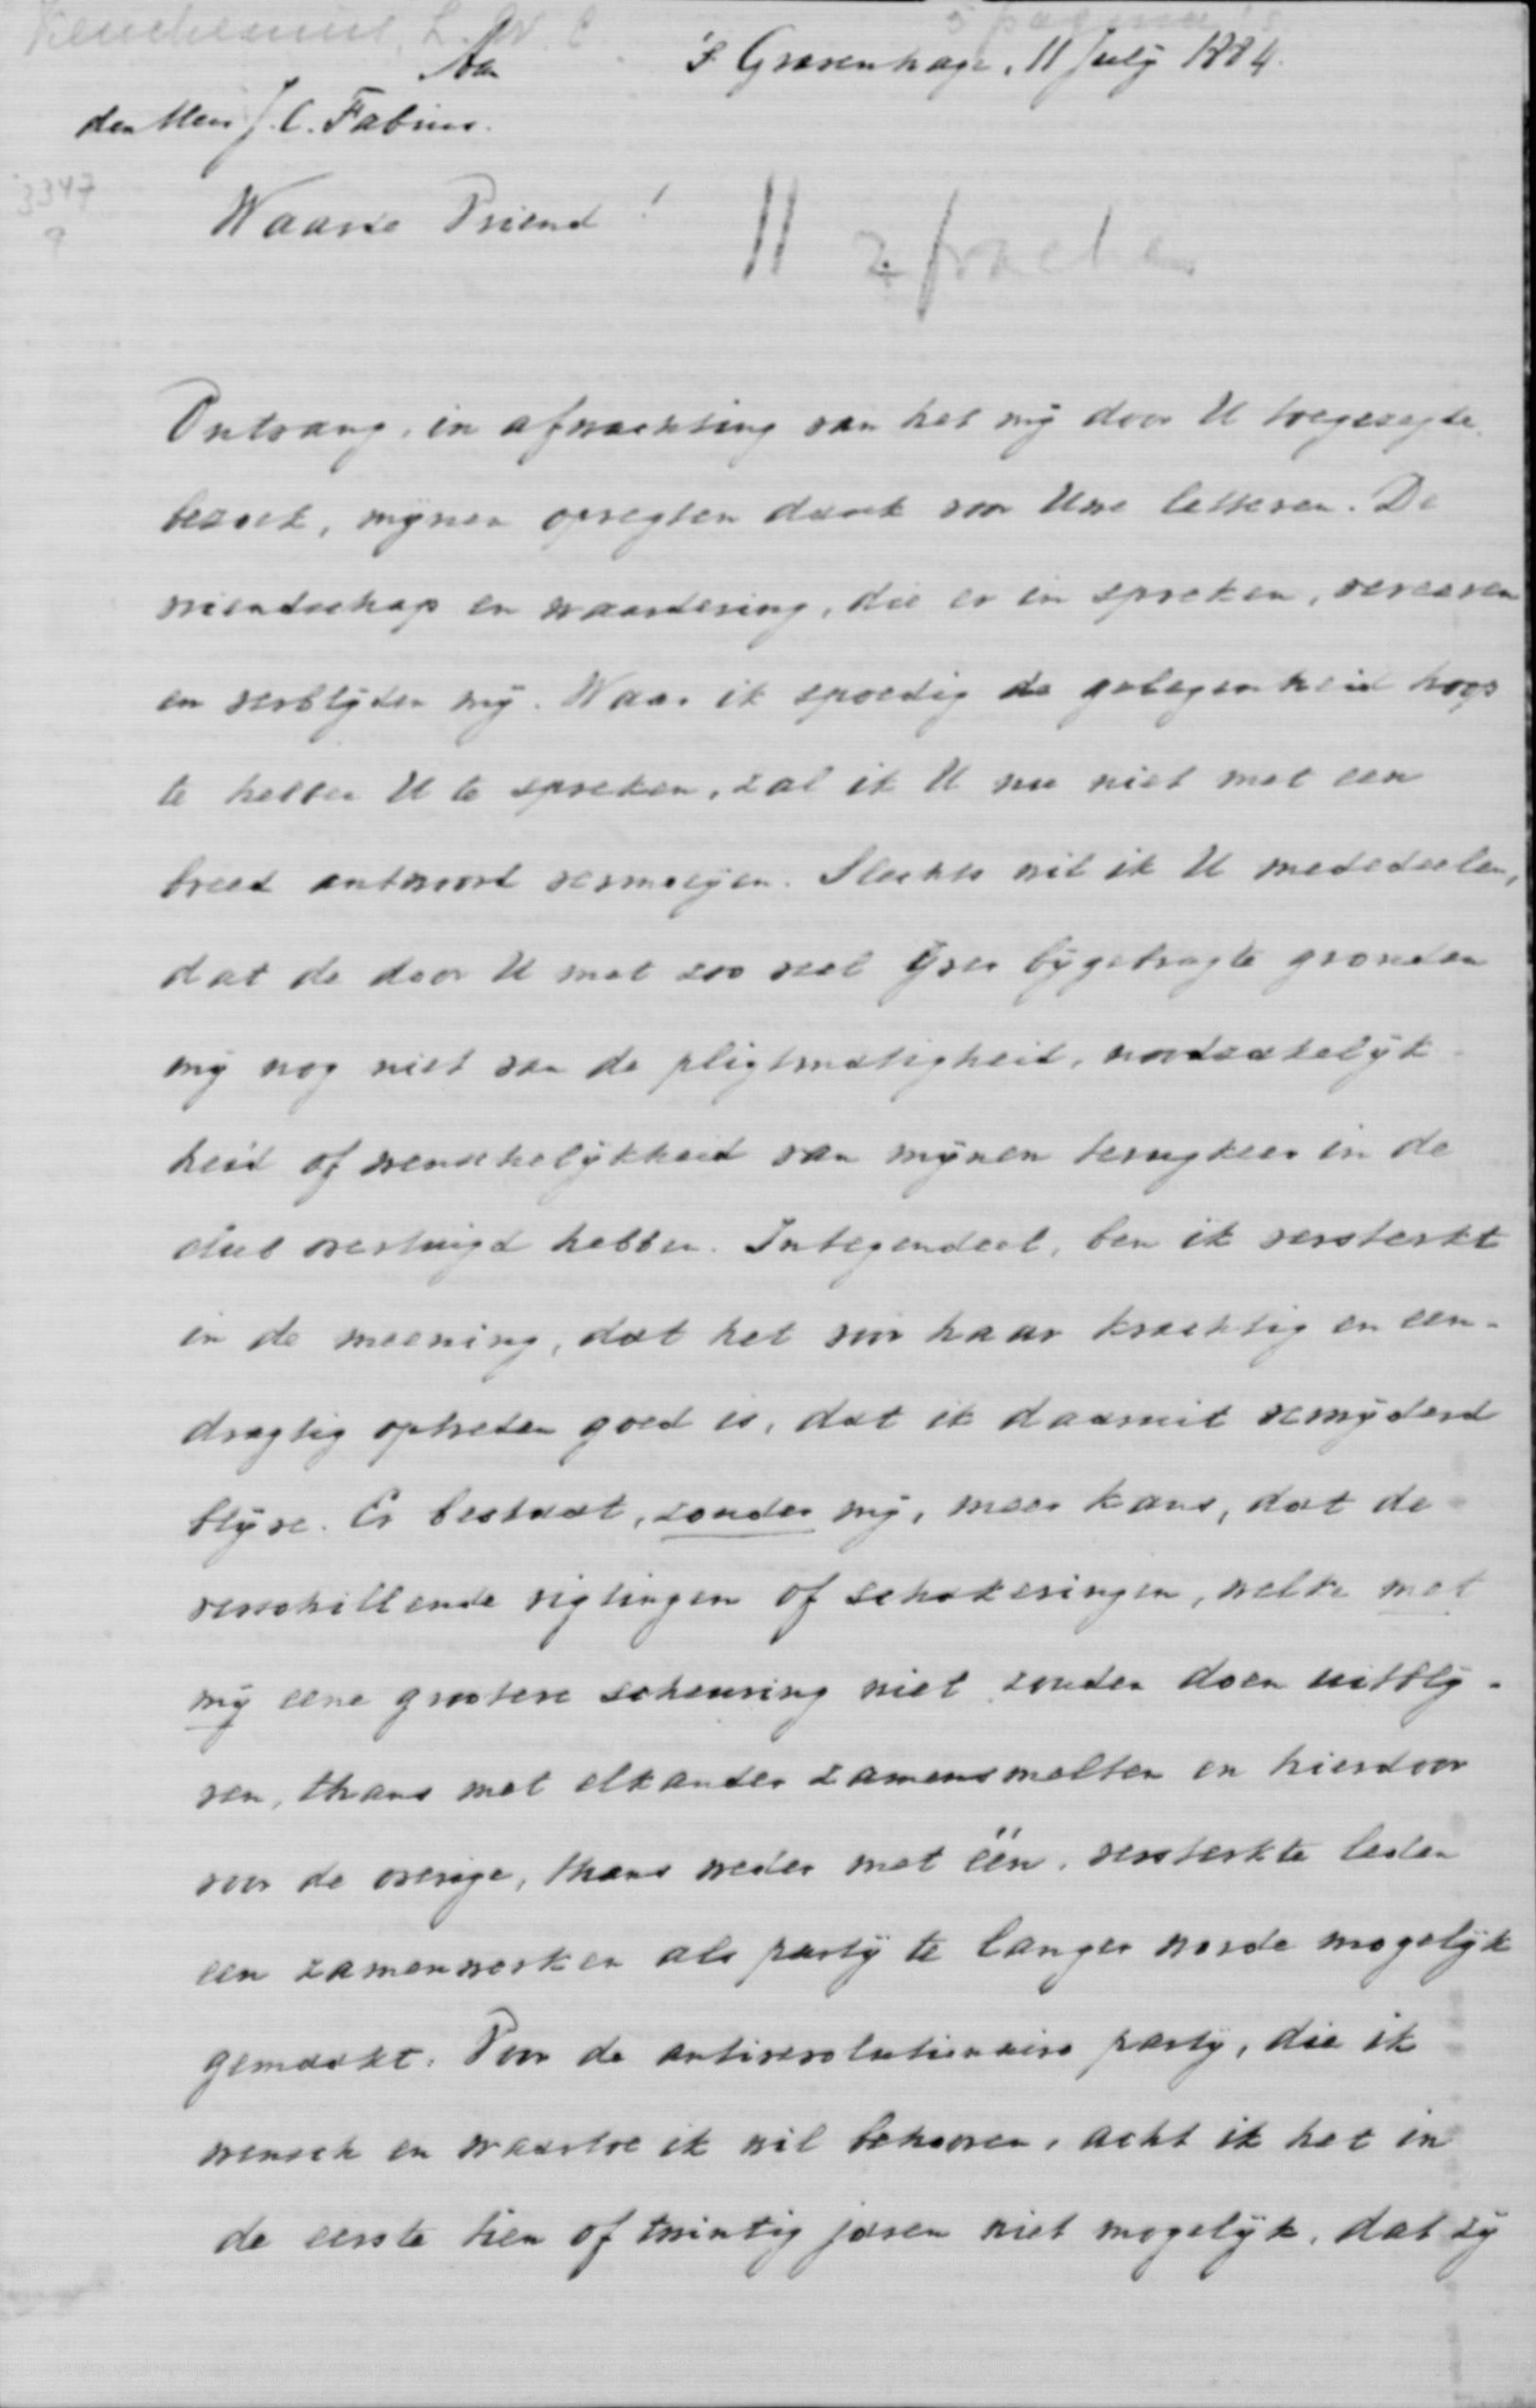 Keuchenius, L. W. C
5 pagina's
Aan
'S Gravenhage, 11 July 1884.
den Heer J. C. Fabius.
3347
9
Waarde Vriend!
Ontvang, in afwachting van het mij door U toegezegde
bezoek, mijnen opregten dank voor Uwe letteren. De
vriendschap en waardering, die er in spreken, vereeren
en verblijden mij. Waar ik spoedig de gelegenheid hoop
te hebben U te spreken, zal ik U nu niet met een
breed antwoord vermoeijen. Slechts wil ik U mededeelen,
dat de door U met zoo veel ijver bijgebragte gronden
mij nog niet van de pligtmatigheid, noodzakelijk-
heid of wenschelijkheid van mijnen terugkeer in de
club overtuigd hebben. Integendeel, ben ik versterkt
in de meening, dat het voor haar krachtig en een-
dragtig optreden goed is, dat ik daaruit verwijderd
blijve. Er bestaat, zonder mij, meer kans, dat de
verschillende rigtingen of schakeringen, welke met
mij eene grootere scheuring niet zouden doen uitblij-
ven, thans met elkander zamensmelten en hierdoor
voor de overige, thans weder met één, versterkte leden
een zamenwerken als partij te langer worde mogelijk
gemaakt. Voor de antirevolutionaire partij, die ik
wensch en waartoe ik wil behooren, acht ik het in
de eerste tien of twintig jaren niet mogelijk, dat zij